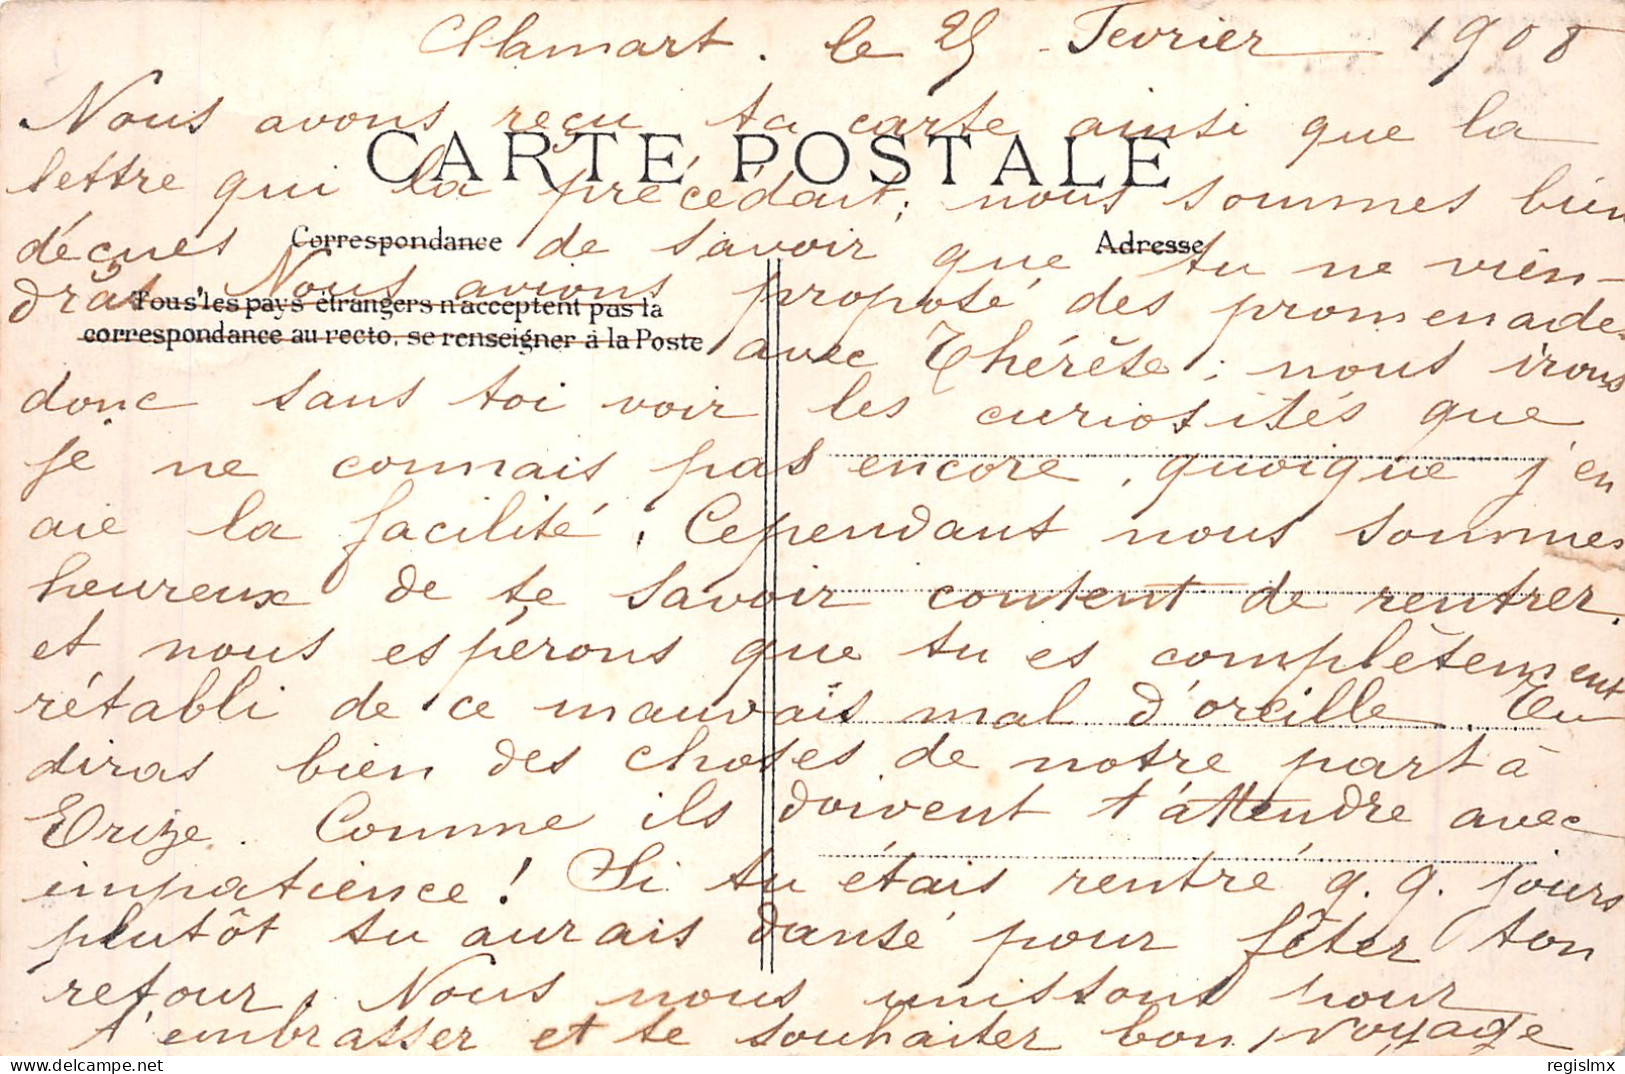 Clamart. le 25 Fevrier 1908
Nous avons reçu ta carte ainsi que la
CARTE POSTALE
lettre qui la précédait; nous sommes bien
déçues de savoir que tu ne vien-
Correspondance
Adresse
dras. Nous avions proposé des promenades
Tous les pays étrangers n'acceptent pas la
correspondance au recto, se renseigner à la Poste
avec Thérèse; nous irons
donc sans toi voir les curiosités que
je ne connais pas encore, quoique j'en
aie la facilité. Cependant nous sommes
heureux de te savoir content de rentrer,
et nous espérons que tu es complètement
rétabli de ce mauvais mal d'oreille. Tu
diras bien des choses de notre part à
Orize. Comme ils doivent t'attendre avec
impatience! Si tu étais rentré q.q. jours
plutôt tu aurais dansé pour fêter ton
retour. Nous nous unissons pour
t'embrasser et te souhaiter bon voyage
regislmx